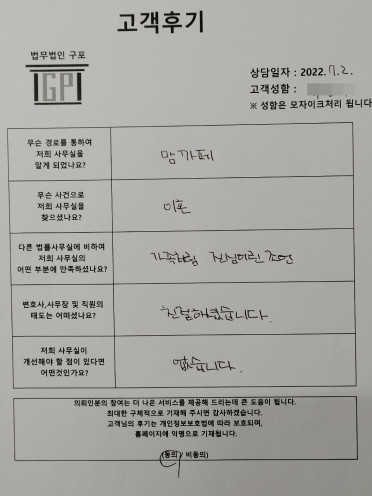 고객후기
법무법인 구포
IGPI
상담일자 : 2022. 7. 2.
고객성함 :
※ 성함은 모자이크처리 됩니다
무슨 경로를 통하여
저희 사무실을
알게 되었나요?
맘카페
무슨 사건으로
저희 사무실을
찾으셨나요?
이혼
다른 법률사무실에 비하여
저희 사무실의
어떤 부분에 만족하셨나요?
가족처럼 진심어린 조언
변호사,사무장 및 직원의
태도는 어떠셨나요?
친절하셨습니다.
저희 사무실이
개선해야 할 점이 있다면
어떤것인가요?
없습니다.
의뢰인분의 참여는 더 나은 서비스를 제공해 드리는데 큰 도움이 됩니다.
최대한 구체적으로 기재해 주시면 감사하겠습니다.
고객님의 후기는 개인정보보호법에 따라 보호되며,
홈페이지에 익명으로 기재됩니다.
(동의 / 비동의)